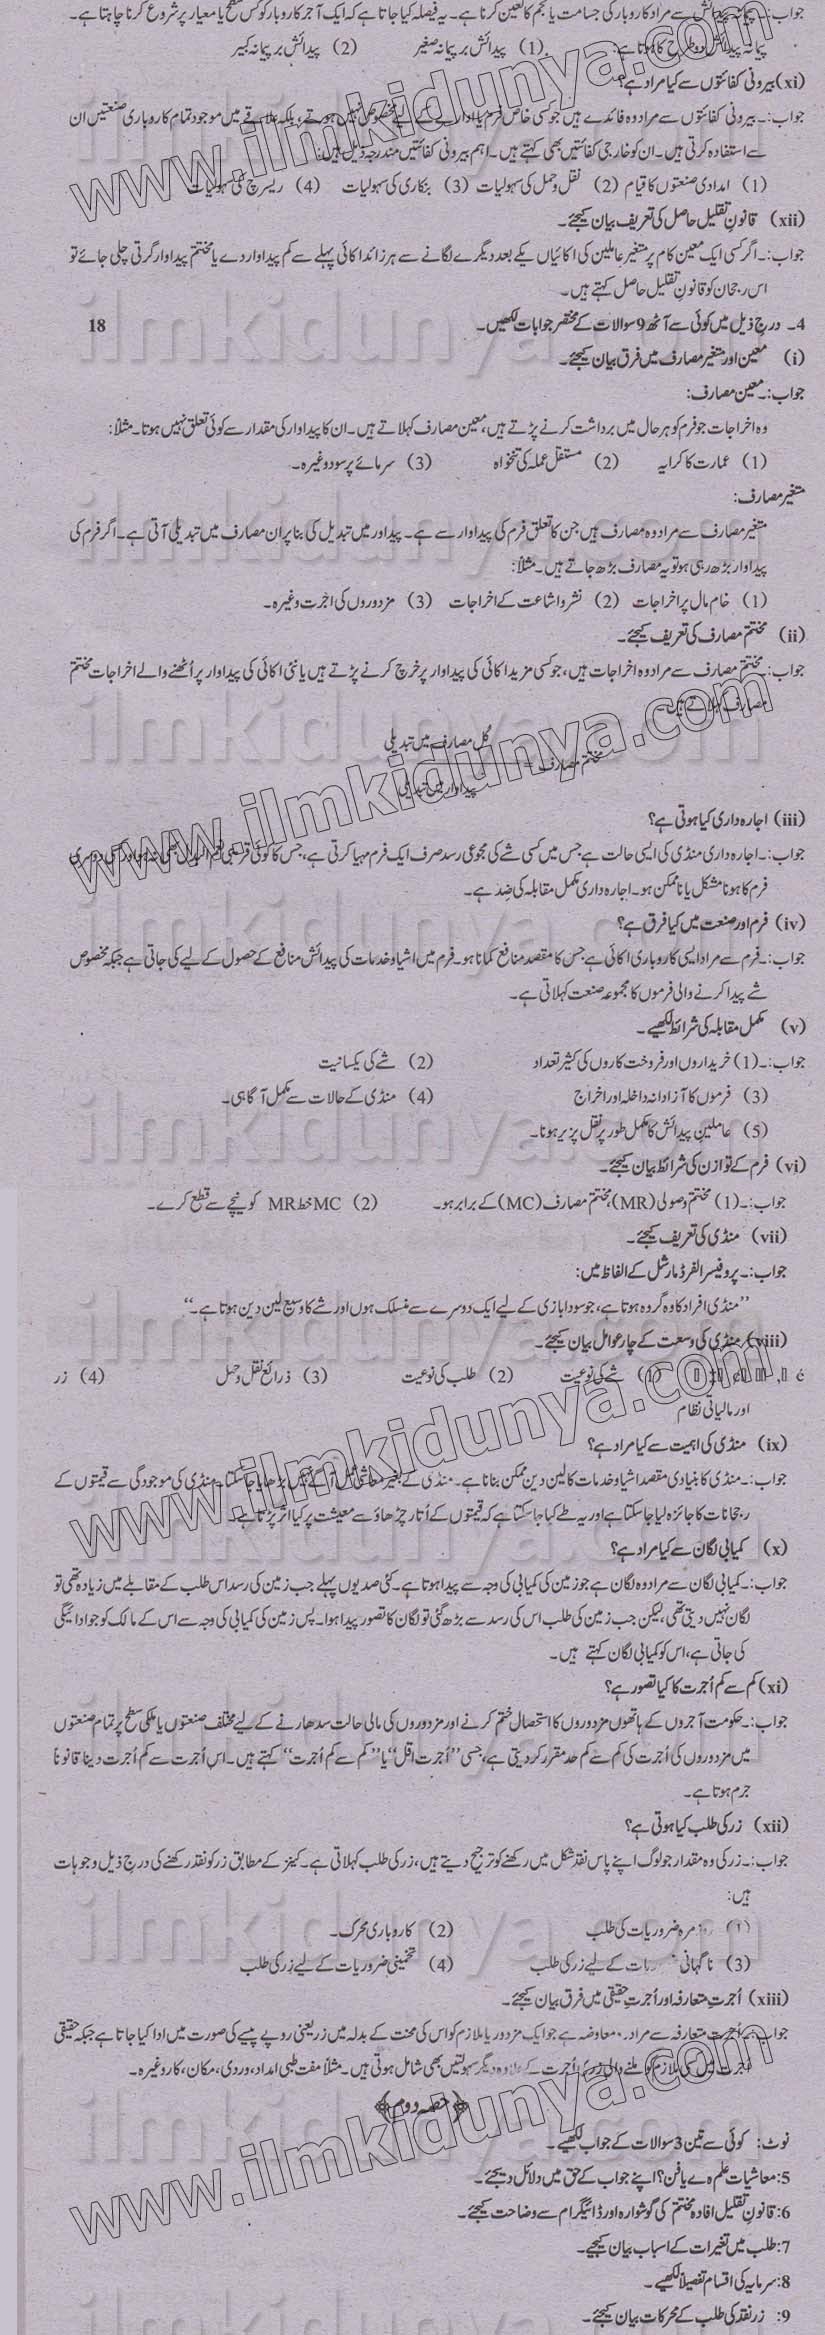 جواب:۔ پیمانہ پیدائش سے مراد کاروبار کی جسامت یا حجم کا تعین کرنا ہے۔ یہ فیصلہ کیا جاتا ہے کہ ایک آجر کاروبار کو کس سطح یا معیار پر شروع کرنا چاہتا ہے۔
پیمانہ پیدائش دو طرح کا ہوتا ہے: (1) پیدائش بر پیمانہ صغیر (2) پیدائش بر پیمانہ کبیر
(xi) بیرونی کفائتوں سے کیا مراد ہے؟
جواب:۔ بیرونی کفائتوں سے مراد وہ فائدے ہیں جو کسی خاص فرم یا ادارے کے لیے مخصوص نہیں ہوتے، بلکہ علاقے میں موجود تمام کاروباری صنعتیں ان
سے استفادہ کرتی ہیں۔ ان کو خارجی کفائتیں بھی کہتے ہیں۔ اہم بیرونی کفائتیں مندرجہ ذیل ہیں:
(1) امدادی صنعتوں کا قیام (2) نقل و حمل کی سہولیات (3) بنکاری کی سہولیات (4) ریسرچ کی سہولیات
(xii) قانونِ تقلیل حاصل کی تعریف بیان کیجئے۔
جواب:۔ اگر کسی ایک معین کام پر متغیر عاملین کی اکائیاں یکے بعد دیگرے لگانے سے ہر زائد اکائی پہلے سے کم پیداوار دے یا مختتم پیداوار گرتی چلی جائے تو
اس رجحان کو قانونِ تقلیل حاصل کہتے ہیں۔
4۔ درج ذیل میں کوئی سے آٹھ 9 سوالات کے مختصر جوابات لکھیں۔ 18
(i) معین اور متغیر مصارف میں فرق بیان کیجئے۔
جواب:۔ معین مصارف:
وہ اخراجات جو فرم کو ہر حال میں برداشت کرنے پڑتے ہیں، معین مصارف کہلاتے ہیں۔ ان کا پیداوار کی مقدار سے کوئی تعلق نہیں ہوتا۔ مثلاً:
(1) عمارت کا کرایہ (2) مستقل عملہ کی تنخواہ (3) سرمائے پر سود وغیرہ۔
متغیر مصارف:
متغیر مصارف سے مراد وہ مصارف ہیں جن کا تعلق فرم کی پیداوار سے ہے۔ پیداور میں تبدیل کی بنا پر ان مصارف میں تبدیلی آتی ہے۔ اگر فرم کی
پیداوار بڑھ رہی ہو تو یہ مصارف بڑھ جاتے ہیں۔ مثلاً:
(1) خام مال پر اخراجات (2) نشر و اشاعت کے اخراجات (3) مزدوروں کی اجرت وغیرہ۔
(ii) مختتم مصارف کی تعریف کیجئے۔
جواب:۔ مختتم مصارف سے مراد وہ اخراجات ہیں، جو کسی مزید اکائی کی پیداوار پر خرچ کرنے پڑتے ہیں یا نئی اکائی کی پیداوار پر اُٹھنے والے اخراجات مختتم
مصارف کہلاتے ہیں۔
کُل مصارف میں تبدیلی
مختتم مصارف =
پیداوار میں تبدیلی
(iii) اجارہ داری کیا ہوتی ہے؟
جواب:۔ اجارہ داری منڈی کی ایسی حالت ہے جس میں کسی شے کی مجموعی رسد صرف ایک فرم مہیا کرتی ہے، جس کا کوئی قریبی نعم البدل بھی نہ ہو اور کسی دوسری
فرم کا ہونا مشکل یا نا ممکن ہو۔ اجارہ داری مکمل مقابلہ کی ضد ہے۔
(iv) فرم اور صنعت میں کیا فرق ہے؟
جواب:۔ فرم سے مراد ایسی کاروباری اکائی ہے جس کا مقصد منافع کمانا ہو۔ فرم میں اشیا و خدمات کی پیدائش منافع کے حصول کے لیے کی جاتی ہے جبکہ مخصوص
شے پیدا کرنے والی فرموں کا مجموعہ صنعت کہلاتی ہے۔
(v) مکمل مقابلہ کی شرائط لکھیے۔
جواب:۔ (1) خریداروں اور فروخت کاروں کی کثیر تعداد (2) شے کی یکسانیت
(3) فرموں کا آزادانہ داخلہ اور اخراج (4) منڈی کے حالات سے مکمل آگاہی۔
(5) عاملینِ پیدائش کا مکمل طور پر نقل پزیر ہونا۔
(vi) فرم کے توازن کی شرائط بیان کیجئے۔
جواب:۔ (1) مختتم وصولی (MR)، مختتم مصارف (MC) کے برابر ہو۔ (2) MC خط MR کو نیچے سے قطع کرے۔
(vii) منڈی کی تعریف کیجئے۔
جواب:۔ پروفیسر الفرڈ مارشل کے الفاظ میں:
”منڈی افراد کا وہ گروہ ہوتا ہے، جو سودا بازی کے لیے ایک دوسرے سے منسلک ہوں اور شے کا وسیع لین دین ہوتا ہے۔“
(viii) منڈی کی وسعت کے چار عوامل بیان کیجئے۔
(1) شے کی نوعیت (2) طلب کی نوعیت (3) ذرائع نقل و حمل (4) زر
اور مالیاتی نظام
(ix) منڈی کی اہمیت سے کیا مراد ہے؟
جواب:۔ منڈی کا بنیادی مقصد اشیا و خدمات کا لین دین ممکن بنانا ہے۔ منڈی کے بغیر معاشی عمل آگے نہیں بڑھایا جا سکتا۔ منڈی کی موجودگی سے قیمتوں کے
رجحانات کا جائزہ لیا جا سکتا ہے اور یہ طے کیا جا سکتا ہے کہ قیمتوں کے اُتار چڑھاؤ سے معیشت پر کیا اثر پڑتا ہے۔
(x) کمیابی لگان سے کیا مراد ہے؟
جواب:۔ کمیابی لگان سے مراد وہ لگان ہے جو زمین کی کمیابی کی وجہ سے پیدا ہوتا ہے۔ کئی صدیوں پہلے جب زمین کی رسد اس طلب کے مقابلے میں زیادہ تھی تو
لگان نہیں دیتی تھی، لیکن جب زمین کی طلب اس کی رسد سے بڑھ گئی تو لگان کا تصور پیدا ہوا۔ پس زمین کی کمیابی کی وجہ سے اس کے مالک کو جو ادائیگی
کی جاتی ہے، اس کو کمیابی لگان کہتے ہیں۔
(xi) کم سے کم اُجرت کا کیا تصور ہے؟
جواب:۔ حکومت آجروں کے ہاتھوں مزدوروں کا استحصال ختم کرنے اور مزدوروں کی مالی حالت سدھارنے کے لیے مختلف صنعتوں یا ملکی سطح پر تمام صنعتوں
میں مزدوروں کی اُجرت کی کم سے کم حد مقرر کر دیتی ہے، جسی ”اُجرت اقل“ یا ”کم سے کم اُجرت“ کہتے ہیں۔ اس اُجرت سے کم اُجرت دینا قانوناً
جرم ہوتا ہے۔
(xii) زر کی طلب کیا ہوتی ہے؟
جواب:۔ زر کی وہ مقدار جو لوگ اپنے پاس نقد شکل میں رکھنے کو ترجیح دیتے ہیں، زر کی طلب کہلاتی ہے۔ کینز کے مطابق زر کو نقد رکھنے کی درج ذیل وجوہات
ہیں:
(1) روزمرہ ضروریات کی طلب (2) کاروباری محرک۔
(3) ناگہانی ضروریات کے لیے زر کی طلب (4) تخمینی ضروریات کے لیے زر کی طلب
(xiii) اُجرتِ متعارفہ اور اُجرتِ حقیقی میں فرق بیان کیجئے۔
جواب:۔ اُجرت متعارفہ سے مراد معاوضہ ہے جو ایک مزدور یا ملازم کو اس کی محنت کے بدلہ میں زر یعنی روپے پیسے کی صورت میں ادا کیا جاتا ہے جبکہ حقیقی
اُجرت میں کسی ملازم کو ملنے والی زری اُجرت کے علاوہ دیگر سہولتیں بھی شامل ہوتی ہیں۔ مثلاً مفت طبی امداد، وردی، مکان، کار وغیرہ۔
﴿حصہ دوم﴾
نوٹ: کوئی سے تین 3 سوالات کے جواب لکھیے۔
5: معاشیات علم ہے یا فن؟ اپنے جواب کے حق میں دلائل دیجئے۔
6: قانونِ تقلیل افادہ مختتم کی گوشوارہ اور ڈائیگرام سے وضاحت کیجئے۔
7: طلب میں تغیرات کے اسباب بیان کیجیے۔
8: سرمایہ کی اقسام تفصیلاً لکھیے۔
9: زرِ نقد کی طلب کے محرکات بیان کیجئے۔
www.ilmkidunya.com